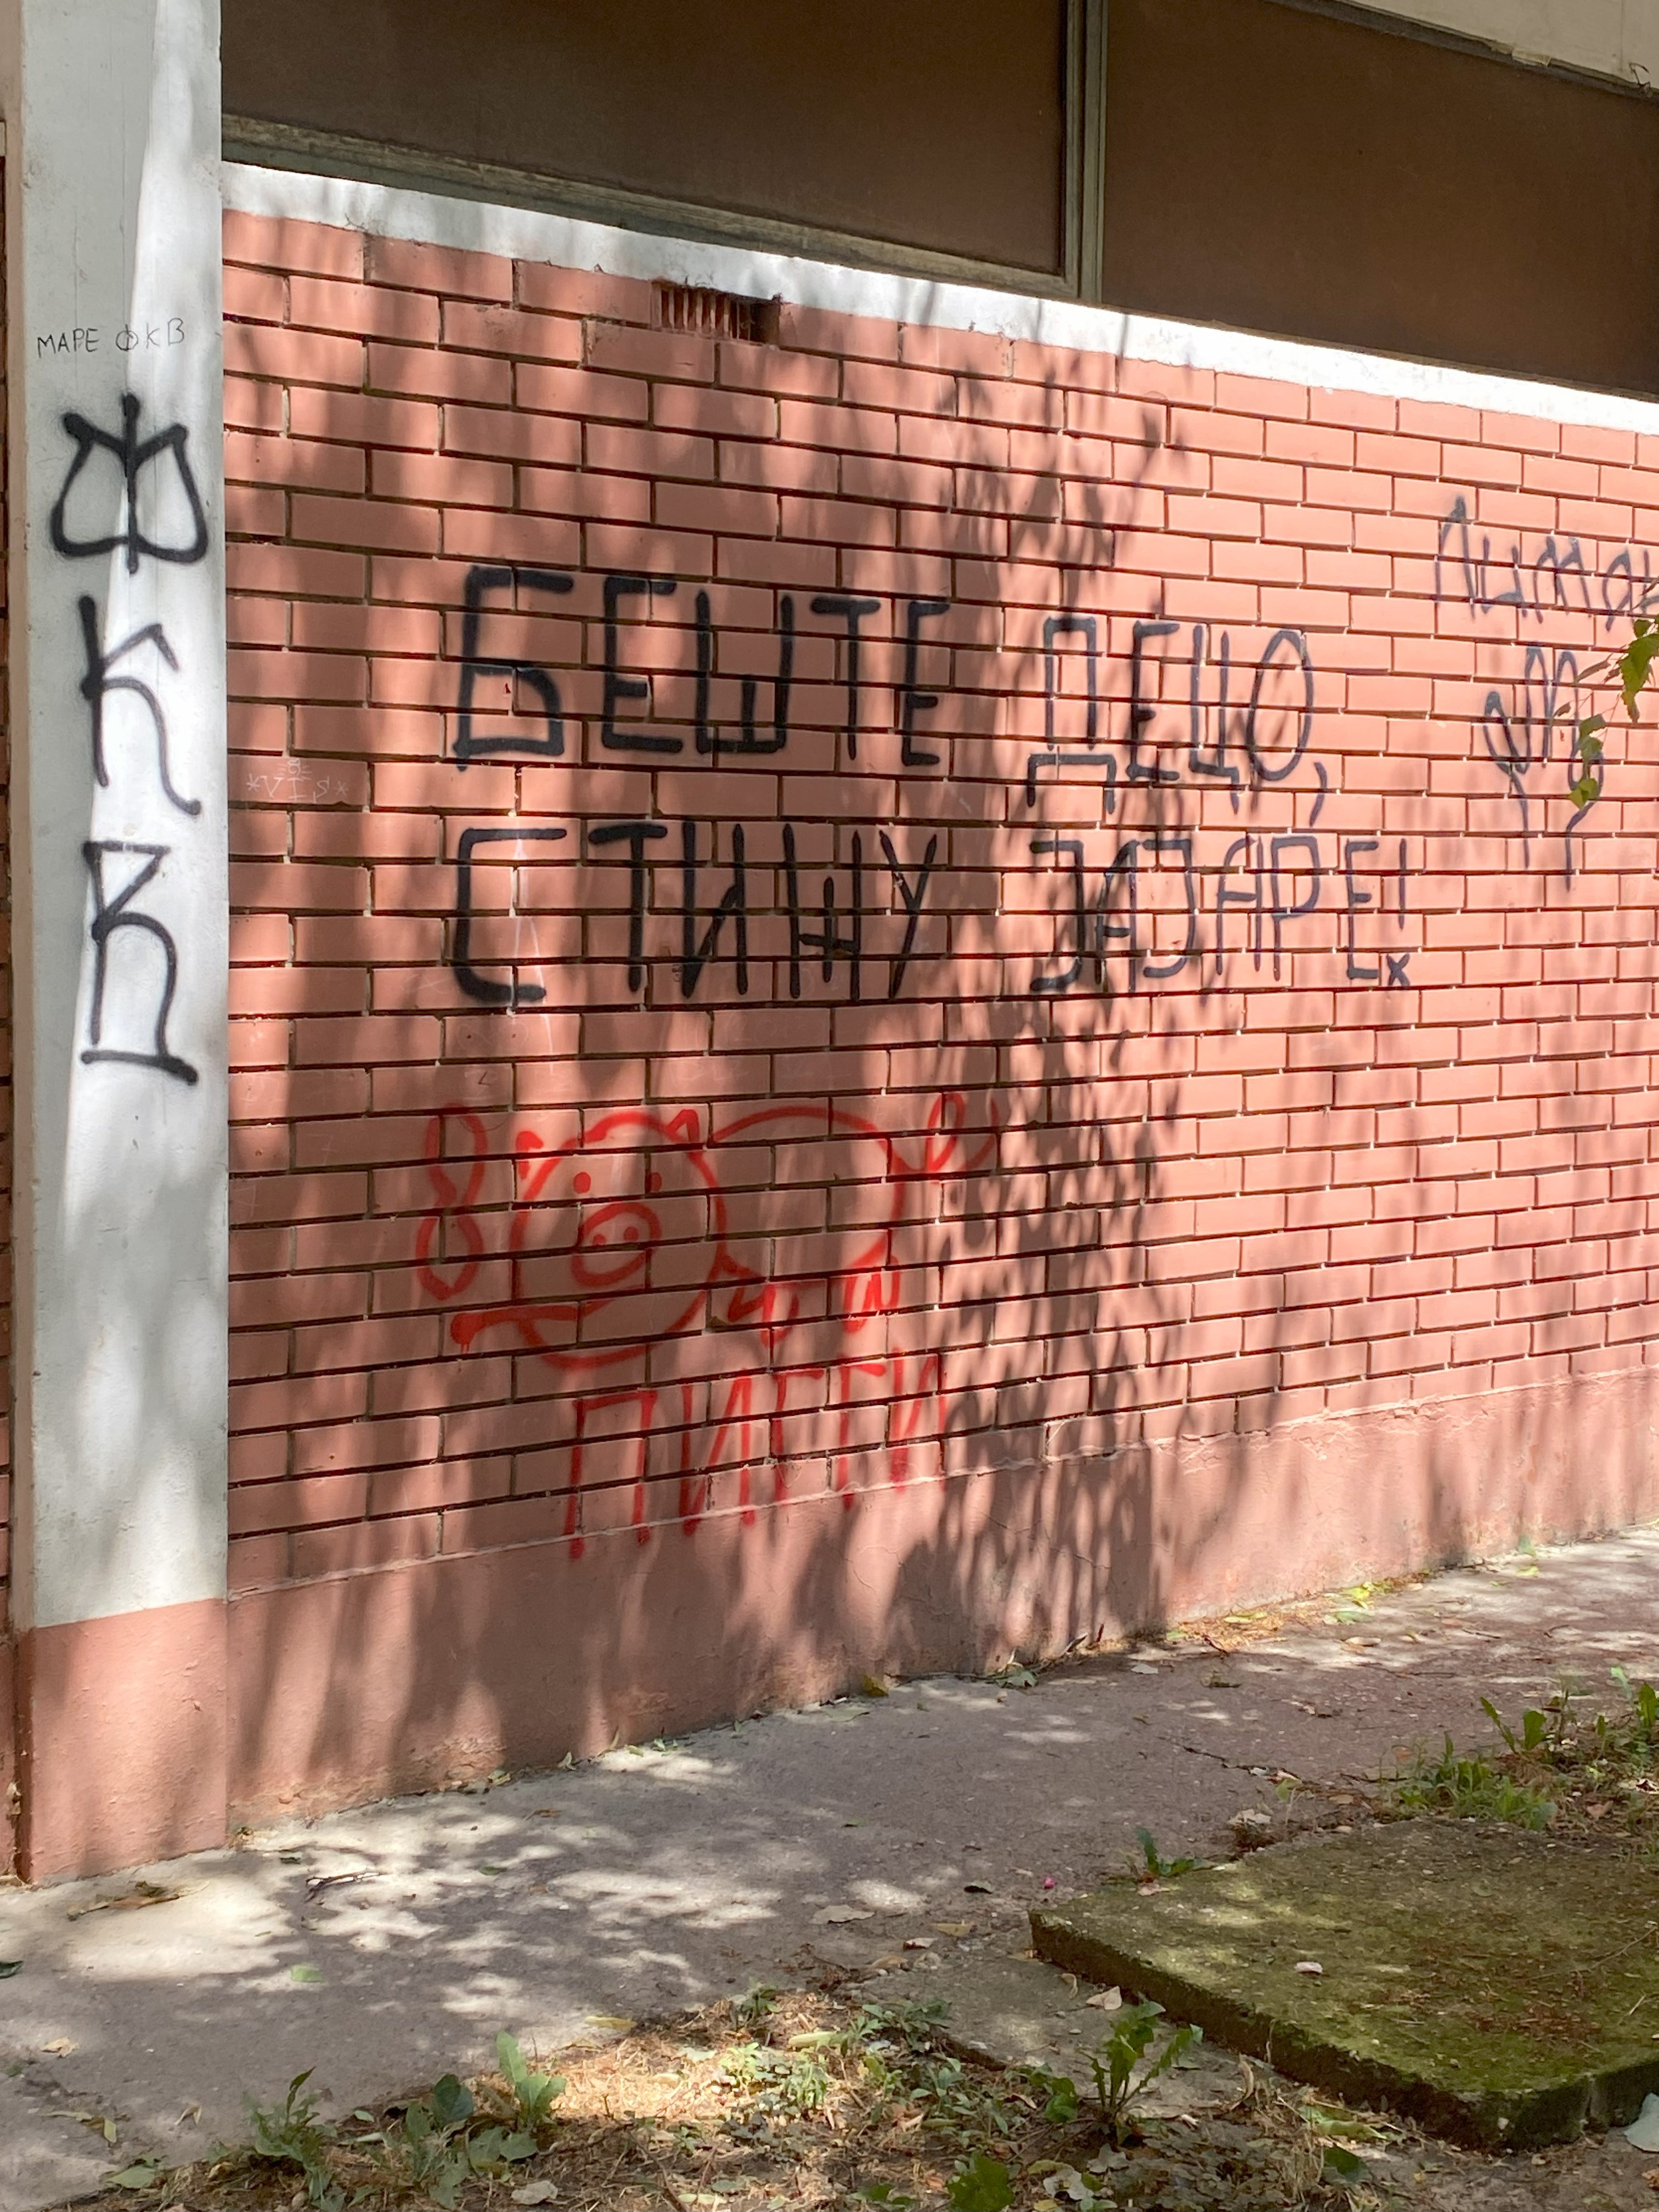 МАРЕ ФКВ
ФКВ
*VIS*
БЕШТЕ ДЕЦО,
СТИЖУ ЗАЈАРЕ!
Лиман
ПИГГИ